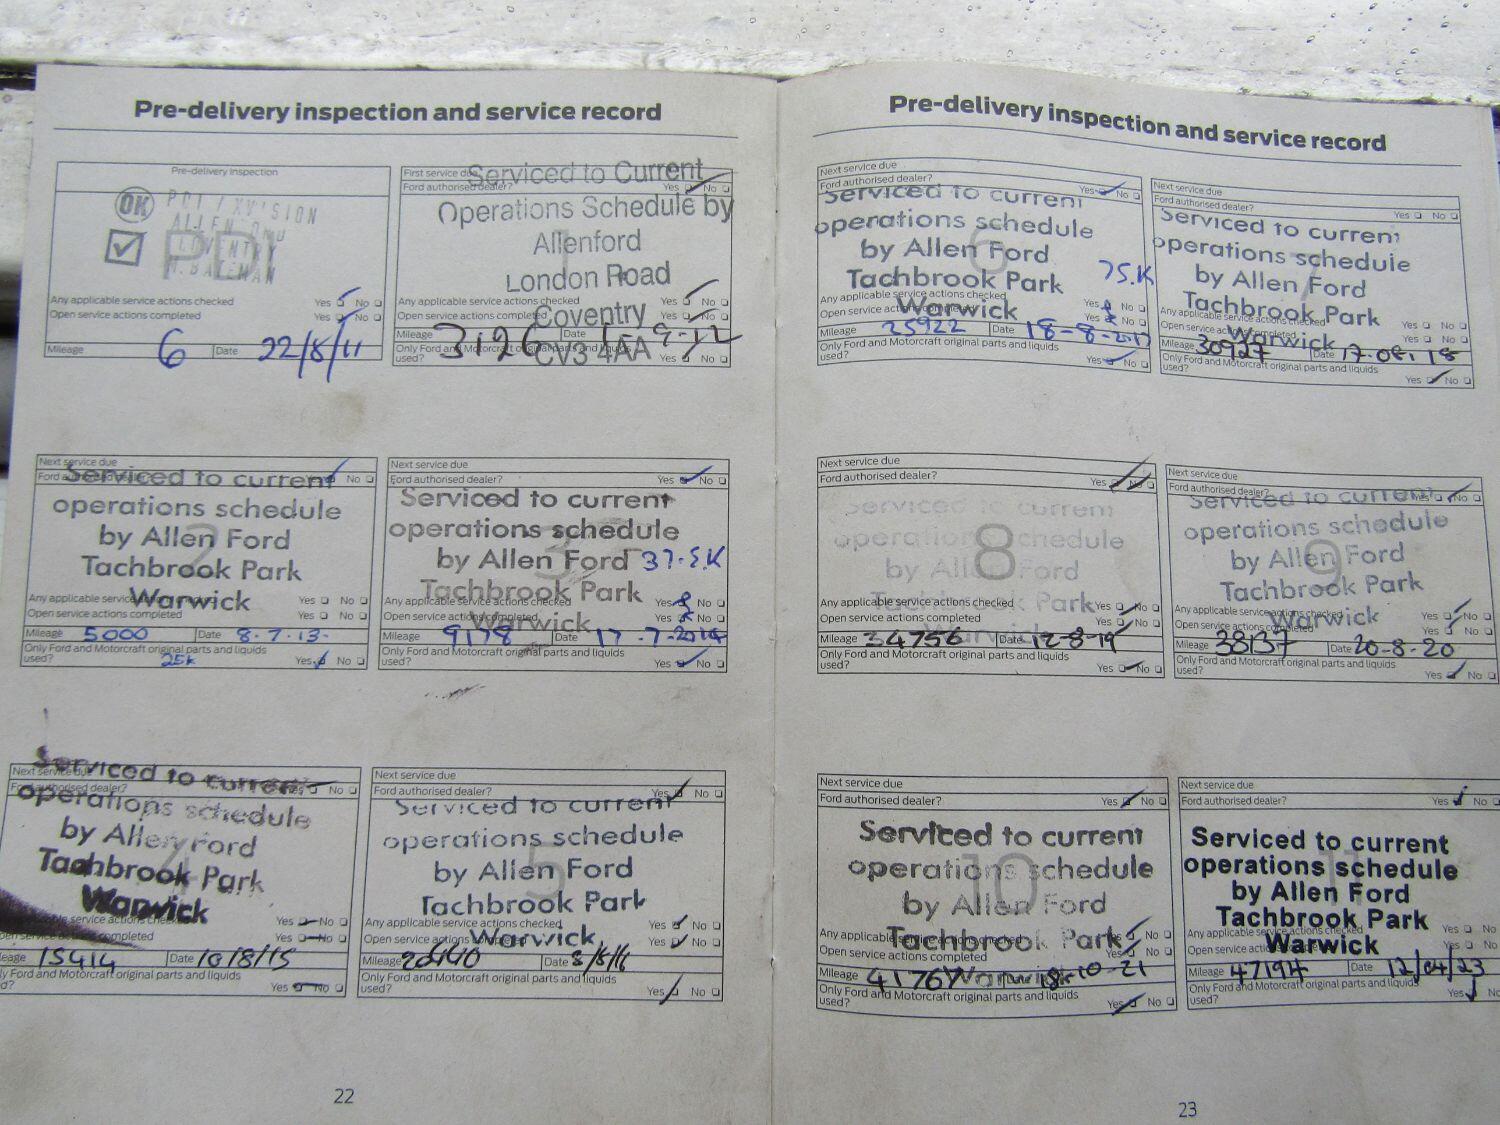 Pre-delivery inspection and service record
Pre-delivery inspection
OK
ALLEN
COVENTRY
PDI
Any applicable service actions checked Yes No
Open service actions completed Yes No
Mileage 6 Date 22/8/11
First service due
Ford authorised dealer? Yes No
Serviced to Current
Operations Schedule by
Allenford
London Road
Coventry
CV3 4FA
1
Any applicable service actions checked Yes No
Open service actions completed Yes No
Mileage 3126 Date
Only Ford and Motorcraft original parts and liquids
used? Yes No
Next service due
Ford authorised dealer? Yes No
Serviced to current
operations schedule
by Allen Ford
Tachbrook Park
Warwick
2
Any applicable service actions checked Yes No
Open service actions completed Yes No
Mileage 5000 Date 8.7.13.
Only Ford and Motorcraft original parts and liquids
used? 25k Yes No
Next service due
Ford authorised dealer? Yes No
Serviced to current
operations schedule
by Allen Ford 37.5.K
Tachbrook Park
Warwick
3
Any applicable service actions checked Yes No
Open service actions completed Yes No
Mileage 9178 Date 17.7.2014
Only Ford and Motorcraft original parts and liquids
used? Yes No
Next service due
Ford authorised dealer? Yes No
Serviced to current
operations schedule
by Allen Ford
Tachbrook Park
Warwick
4
service actions checked Yes No
completed Yes No
15414 Date 10/8/15
Ford and Motorcraft original parts and liquids
Yes No
Next service due
Ford authorised dealer? Yes No
Serviced to current
operations schedule
by Allen Ford
Tachbrook Park
Warwick
5
Any applicable service actions checked Yes No
Open service actions completed Yes No
Mileage Date 8/8/16
Only Ford and Motorcraft original parts and liquids
used? Yes No
22
Pre-delivery inspection and service record
Next service due
Ford authorised dealer? Yes No
Serviced to current
operations schedule
by Allen Ford
Tachbrook Park 75.K
Warwick
6
Any applicable service actions checked Yes No
Open service actions completed Yes No
Mileage 25922 Date 18-8-2017
Only Ford and Motorcraft original parts and liquids
used? Yes No
Next service due
Ford authorised dealer? Yes No
Serviced to current
operations schedule
by Allen Ford
Tachbrook Park
Warwick
7
Any applicable service actions checked Yes No
Open service actions completed Yes No
Mileage 30927 Date 17.08.18
Only Ford and Motorcraft original parts and liquids
used? Yes No
Next service due
Ford authorised dealer? Yes No
Serviced to current
operations schedule
by Allen Ford
Tachbrook Park
Warwick
8
Any applicable service actions checked Yes No
Open service actions completed Yes No
Mileage 34756 Date 12-8-19
Only Ford and Motorcraft original parts and liquids
used? Yes No
Next service due
Ford authorised dealer? Yes No
Serviced to current
operations schedule
by Allen Ford
Tachbrook Park
Warwick
9
Any applicable service actions checked Yes No
Open service actions completed Yes No
Mileage 38137 Date 20-8-20
Only Ford and Motorcraft original parts and liquids
used? Yes No
Next service due
Ford authorised dealer? Yes No
Serviced to current
operations schedule
by Allen Ford
Tachbrook Park
Warwick
10
Any applicable service actions checked Yes No
Open service actions completed Yes No
Mileage 41767 18-10-21
Only Ford and Motorcraft original parts and liquids
used? Yes No
Next service due
Ford authorised dealer? Yes No
Serviced to current
operations schedule
by Allen Ford
Tachbrook Park
Warwick
11
Any applicable service actions checked Yes No
Open service actions completed Yes No
Mileage 47194 Date 12/04/23
Only Ford and Motorcraft original parts and liquids
used? Yes No
23